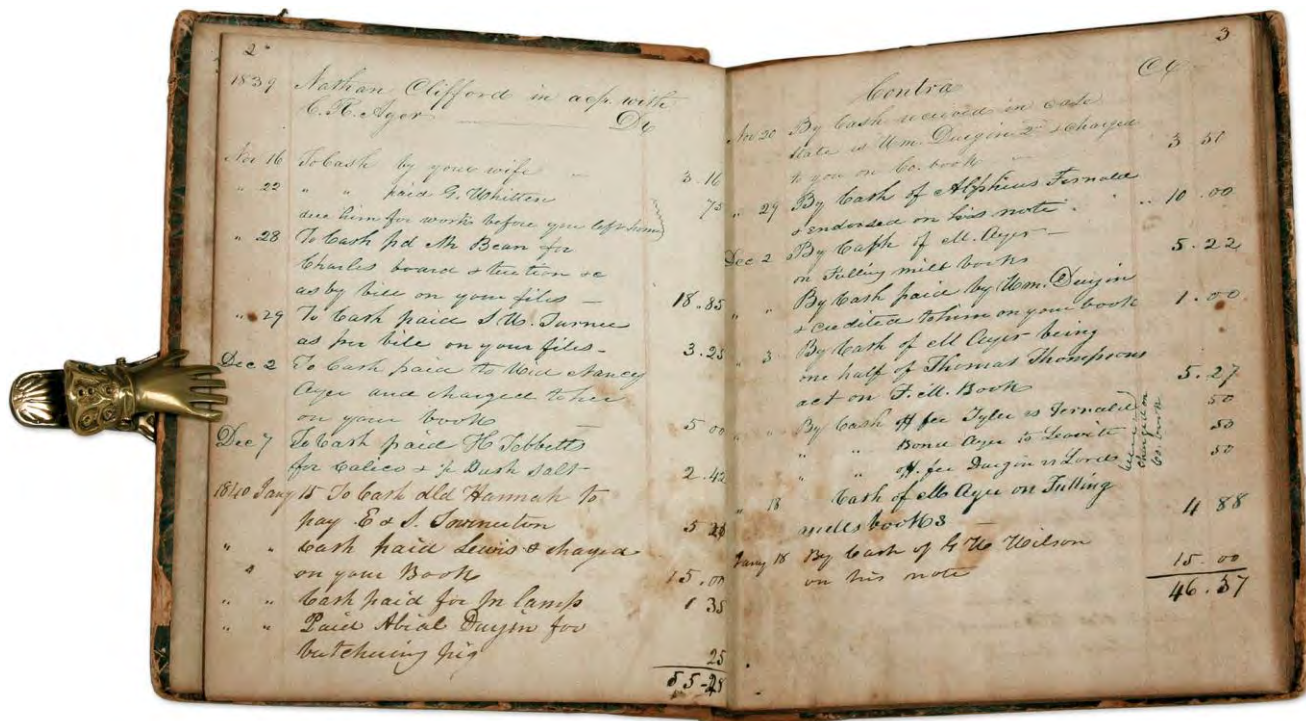 2
1839 Nathan Clifford in acp. with
C. R. Ayer Dr
Nov 16 To Cash by your wife 3.16
" 22 " " paid G. Whitten 75
due him for works before you left home
" 28 To Cash pd Mr Bean for
Charles board & tuition &c
as by bill on your files — 18.85
" 29 To Cash paid S. W. Turner
as per bill on your files - 3.25
Dec 2 To Cash paid to Wid Nancy
Ayer and charged to her
on your book 5 00
Dec 7 To Cash paid H Tebbetts
for Calico & Bush Salt 2.42
1840 Jany 15 To Cash dld Hannah to
pay E & S. 5
" " Cash paid Lewis & charged
on your Book 15.00
" " Cash paid for lamp 1 35
" " Paid Abial Durgin for
butchering pig 25
55-28
3
Contra Cr
Nov 20 By Cash received in case
State vs Wm. Durgin 2d & charged
to you on Co. book — 3 50
" 29 By Cash of Alpheus Fernald
& endorsed on his note 10.00
Dec 2 By Cash of M. Ayer —
on Fulling mill books 5.22
" " By Cash paid by Wm. Durgin
& credited to him on your book 1.00
" 3 By Cash of M Ayer being
one half of Thomas Thompsons
act on F. M. Book 5.27
" " By Cash off fee Tyler vs Fernald 50
" " Bond Ayer to Leavitt 50
" " off. fee Durgin vs Lords 50
charged on
Co. book
" 18 Cash of M Ayer on Fulling
mills books — 4 88
Jany 18 By Cash of G W Wilson
on his note 15.00
46.37